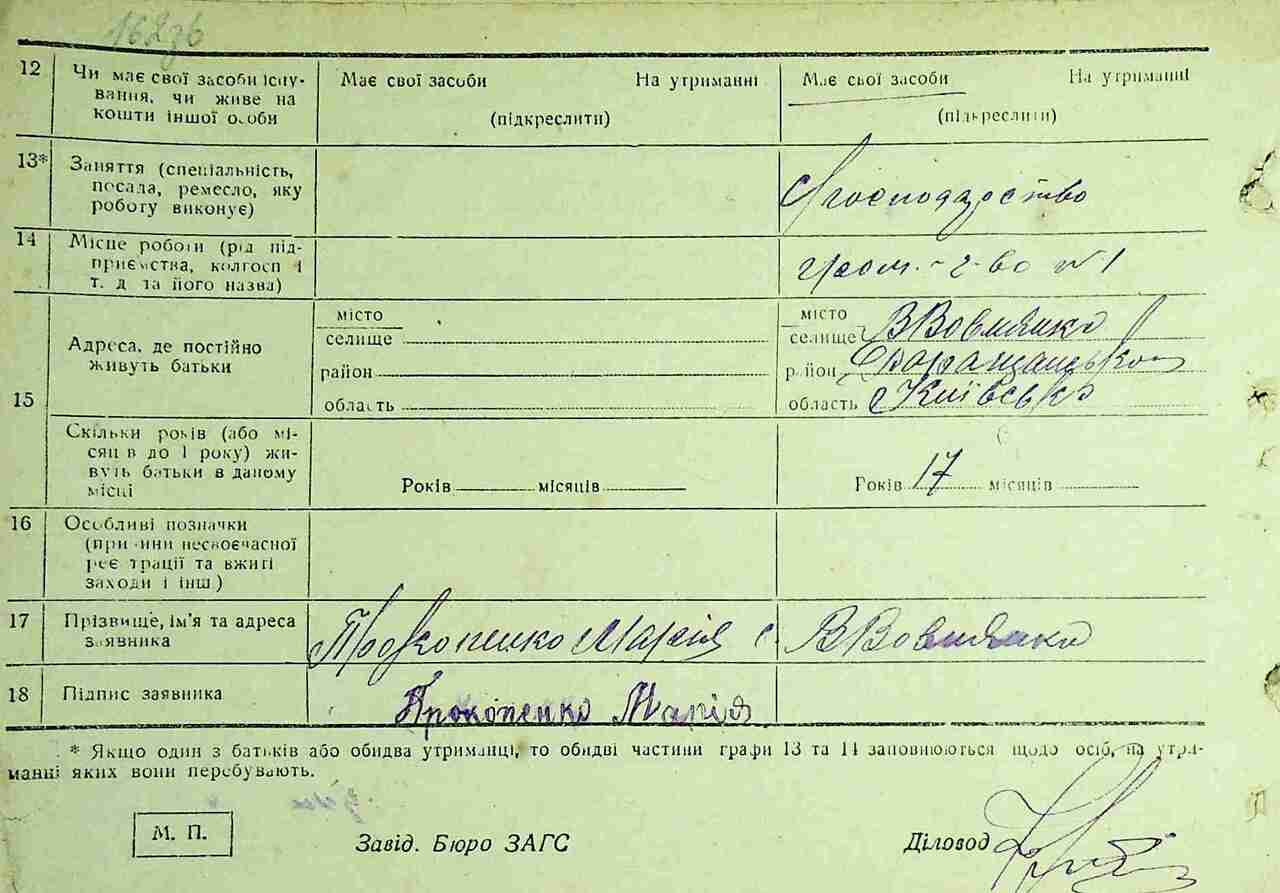 162зв
12 Чи має свої засоби існу- Має свої засоби На утриманні Має свої засоби На утриманні
вання, чи живе на
кошти іншої особи (підкреслити) (підкреслити)
13* Заняття (спеціальність,
посада, ремесло, яку господарство
роботу виконує)
14 Місце роботи (рід під-
приємства, колгосп і гром. г-во №1
т. д та його назва)
місто місто
Адреса, де постійно селище селище ВВовнянка
живуть батьки район район Таращанського
15 область область Київська
Скільки років (або мі-
сяців до 1 року) жи-
вуть батьки в даному Років місяців Років 17 місяців
місці
16 Особливі позначки
(причини несвоєчасної
реєстрації та вжиті
заходи і інш.)
17 Прізвище, ім'я та адреса Прокопенко Марія с. ВВовнянка
заявника
18 Підпис заявника Прокопенко Марія
* Якщо один з батьків або обидва утриманці, то обидві частини графи 13 та 14 заповнюються щодо осіб, на утри-
манні яких вони перебувають.
М. П. Завід. Бюро ЗАГС Діловод